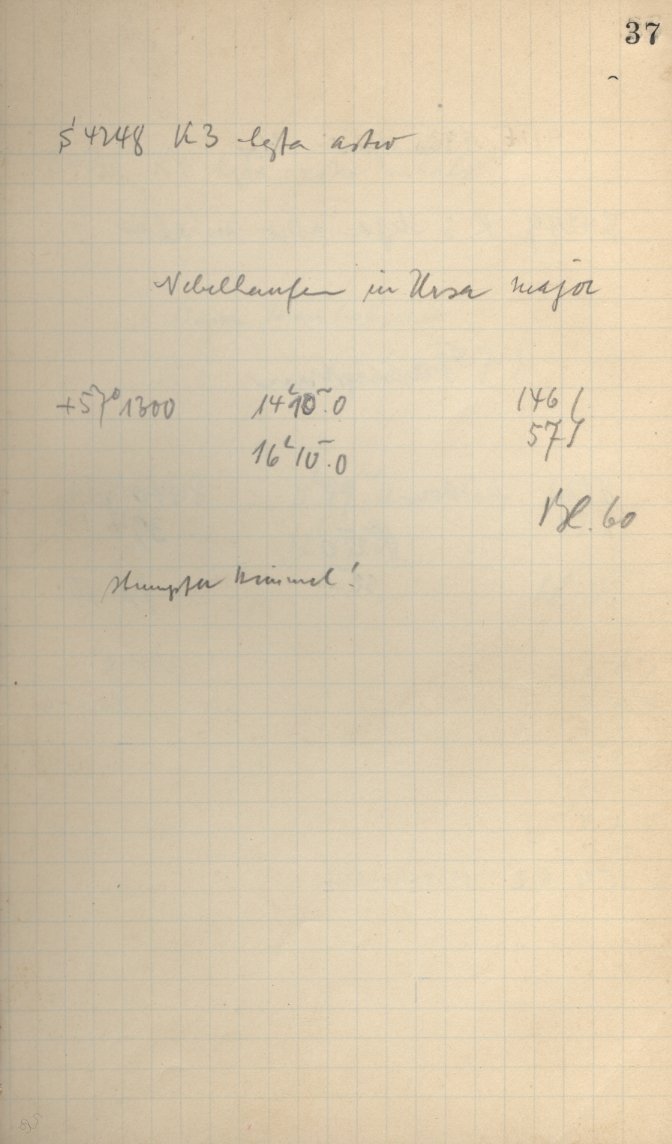 37
4248 K3 Agfa astro
Nebelhaufen in Ursa major
+57° 1300 14ʰ10ᵐ.0 146
16ʰ10ᵐ.0 57
Bl. 60
Himmel!